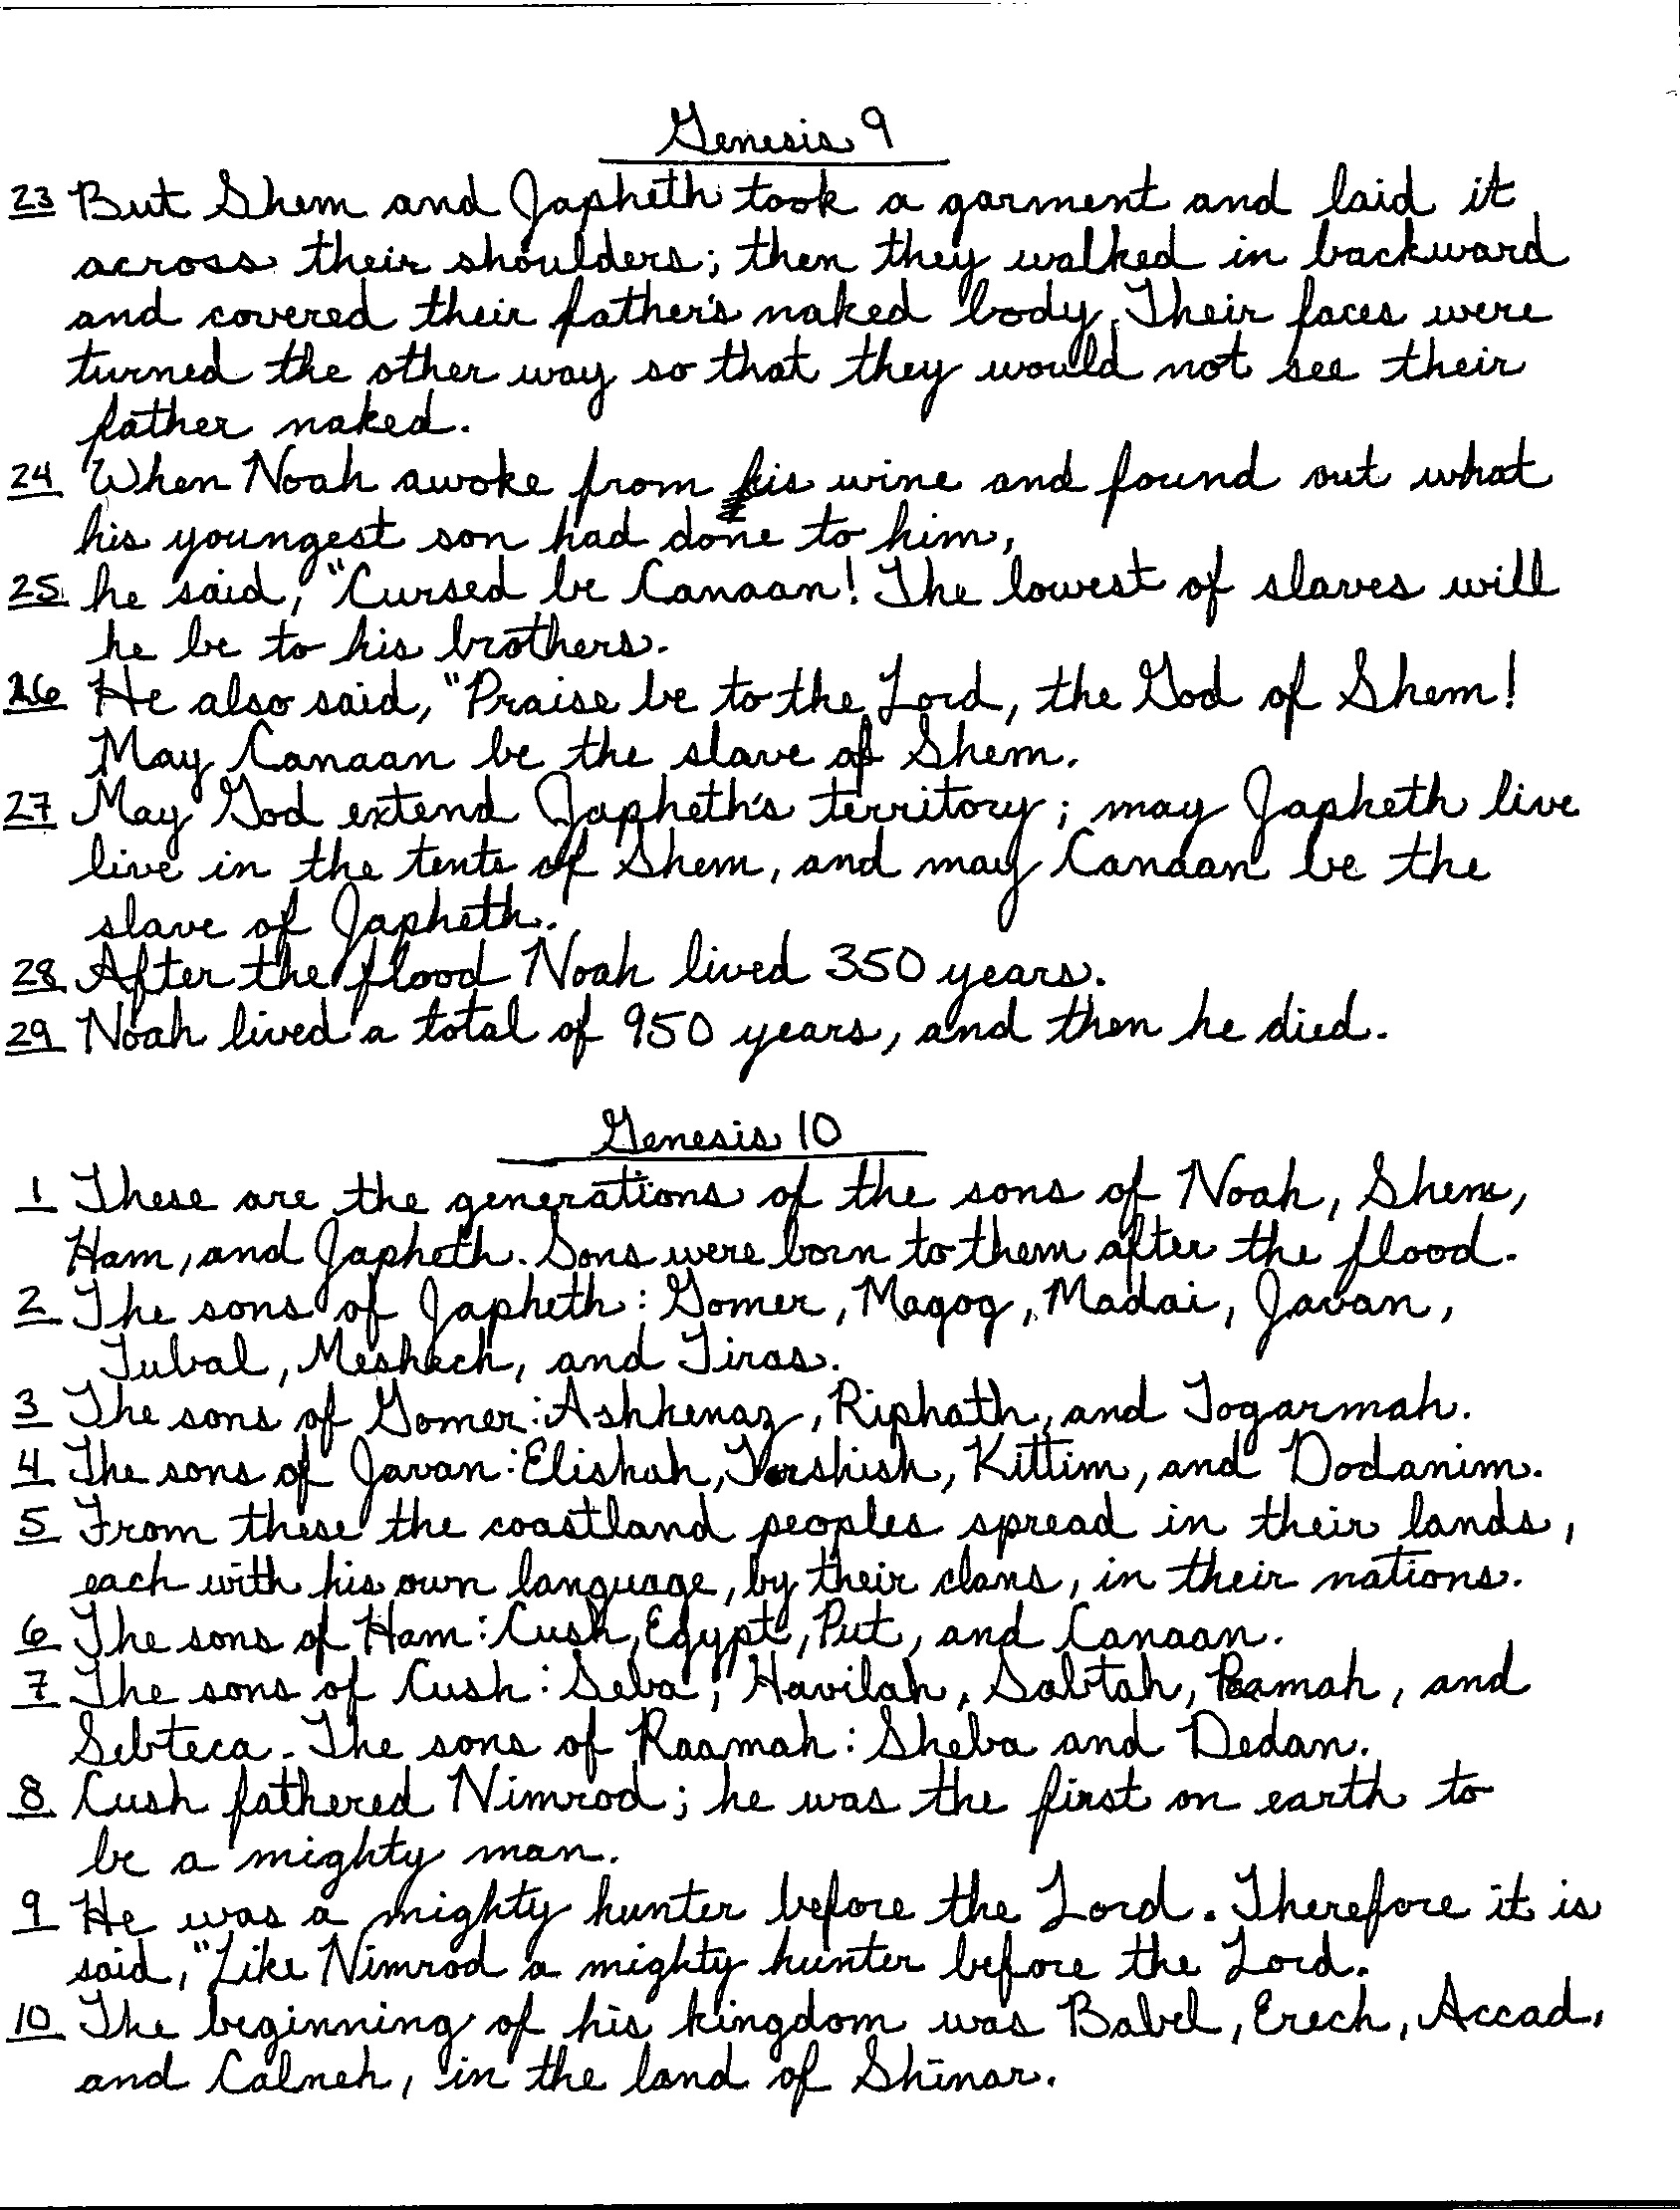 Genesis 9
23 But Shem and Japheth took a garment and laid it
across their shoulders; then they walked in backward
and covered their father's naked body. Their faces were
turned the other way so that they would not see their
father naked.
24 When Noah awoke from his wine and found out what
his youngest son had done to him,
25 he said, "Cursed be Canaan! The lowest of slaves will
he be to his brothers.
26 He also said, "Praise be to the Lord, the God of Shem!
May Canaan be the slave of Shem.
27 May God extend Japheth's territory; may Japheth live
live in the tents of Shem, and may Canaan be the
slave of Japheth.
28 After the flood Noah lived 350 years.
29 Noah lived a total of 950 years, and then he died.
Genesis 10
1 These are the generations of the sons of Noah, Shem,
Ham, and Japheth. Sons were born to them after the flood.
2 The sons of Japheth: Gomer, Magog, Madai, Javan,
Tubal, Meshech, and Tiras.
3 The sons of Gomer: Ashkenaz, Riphath, and Togarmah.
4 The sons of Javan: Elishah, Tarshish, Kittim, and Dodanim.
5 From these the coastland peoples spread in their lands,
each with his own language, by their clans, in their nations.
6 The sons of Ham: Cush, Egypt, Put, and Canaan.
7 The sons of Cush: Seba, Havilah, Sabtah, Ramah, and
Sebteca. The sons of Raamah: Sheba and Dedan.
8 Cush fathered Nimrod; he was the first on earth to
be a mighty man.
9 He was a mighty hunter before the Lord. Therefore it is
said, "Like Nimrod a mighty hunter before the Lord.
10 The beginning of his kingdom was Babel, Erech, Accad,
and Calneh, in the land of Shinar.